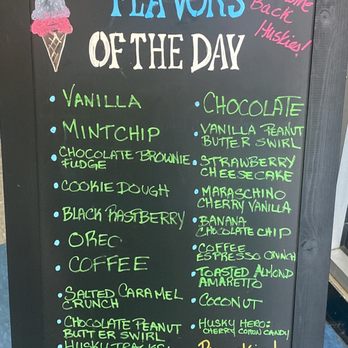 FLAVORS
Back
Huskies!
OF THE DAY
• VANILLA
• MINTCHIP
• CHOCOLATE BROWNIE
FUDGE
• COOKIE DOUGH
• BLACK RASTBERRY
• OREO
• COFFEE
• SALTED CARAMEL
CRUNCH
• CHOCOLATE PEANUT
BUTTER SWIRL
• HUSKY TRACKS
• CHOCOLATE
• VANILLA PEANUT
BUTTER SWIRL
• STRAWBERRY
CHEESECAKE
• MARASCHINO
CHERRY VANILLA
• BANANA
CHOCOLATE CHIP
• COFFEE
ESPRESSO CRUNCH
• TOASTED ALMOND
AMARETTO
• COCONUT
• HUSKY HERO:
CHERRY COTTON CANDY